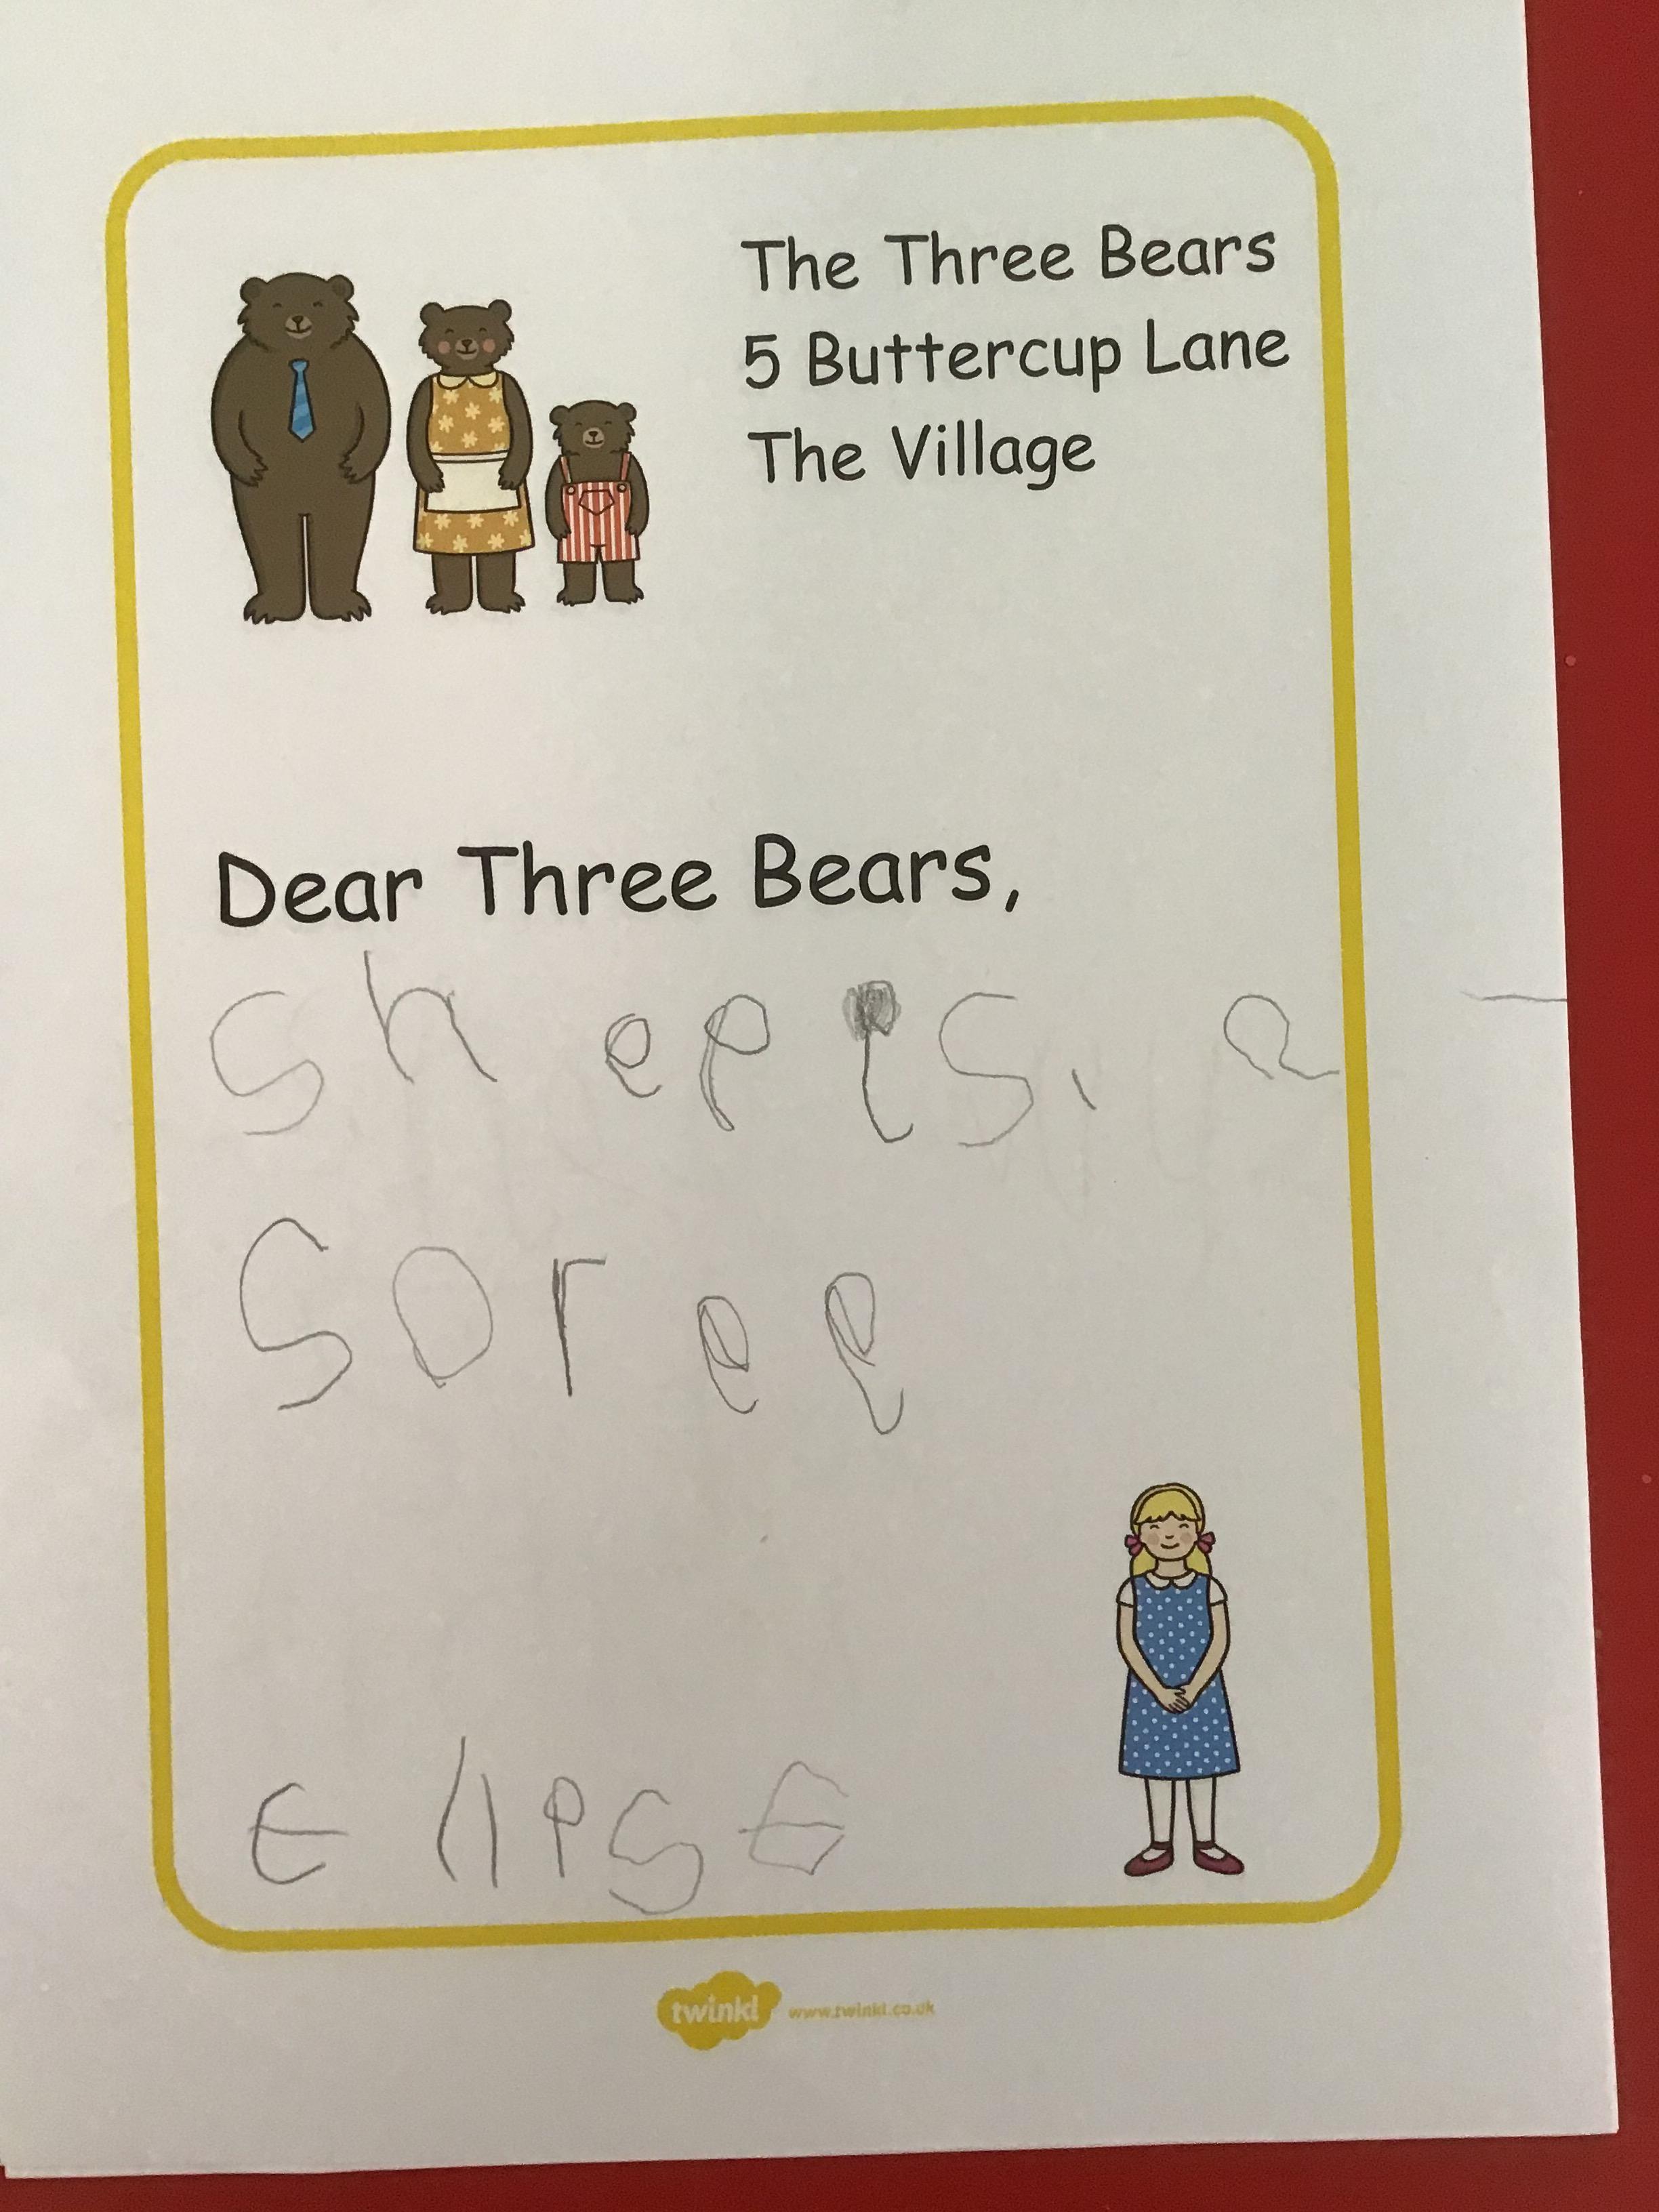 The Three Bears
5 Buttercup Lane
The Village
Dear Three Bears,
soree
twinkl www.twinkl.co.uk